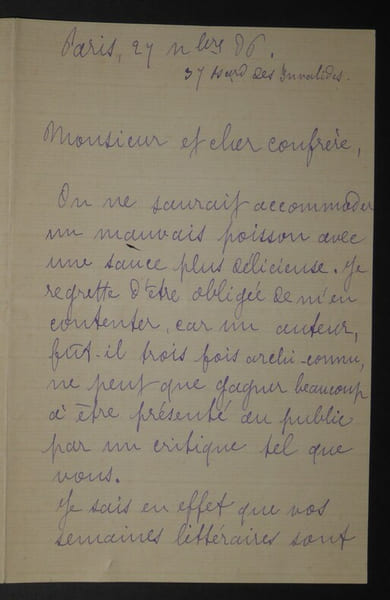 Paris, 27 nbre 86.
37 Bard des Invalides.
Monsieur et cher confrère,
On ne saurait accommoder
un mauvais poisson avec
une sauce plus délicieuse. Je
regrette d'être obligée de m'en
contenter, car un auteur,
fût-il trois fois archi-connu,
ne peut que gagner beaucoup
à être présenté au public
par un critique tel que
vous.
Je sais en effet que vos
semaines littéraires sont